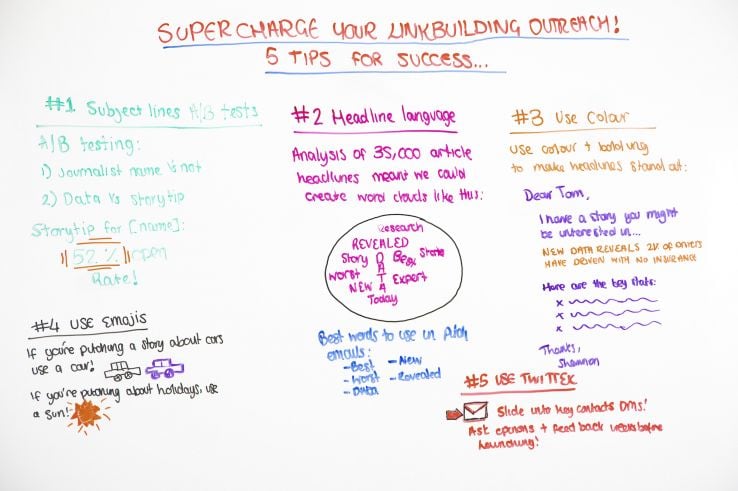 SUPERCHARGE YOUR LINKBUILDING OUTREACH!
5 TIPS FOR SUCCESS...
#1 Subject lines A/B tests
A/B testing:
1) Journalist name vs not
2) Data vs storytip
Storytip for [name]:
52% open
Rate!
#2 Headline language
Analysis of 35,000 article
headlines meant we could
create word clouds like this:
Research
REVEALED
Story
DATA
Best
State
Worst
Expert
NEW
Today
Best words to use in Pitch
emails:
- Best
- New
- Worst
- Revealed
- Data
#3 Use Colour
Use colour + bolding
to make headlines stand out:
Dear Tom,
I have a story you might
be interested in...
NEW DATA REVEALS 2K OF
HAVE DRIVEN WITH NO INSURANCE
Here are the key stats:
x
x
x
Thanks,
Shannon
#4 USE EMOJIS
If you're pitching a story about cars
use a car!
If you're pitching about holidays, use
a sun!
#5 USE TWITTER
Slide into key contacts DMs!
Ask opinions + feedback weeks before
launching!